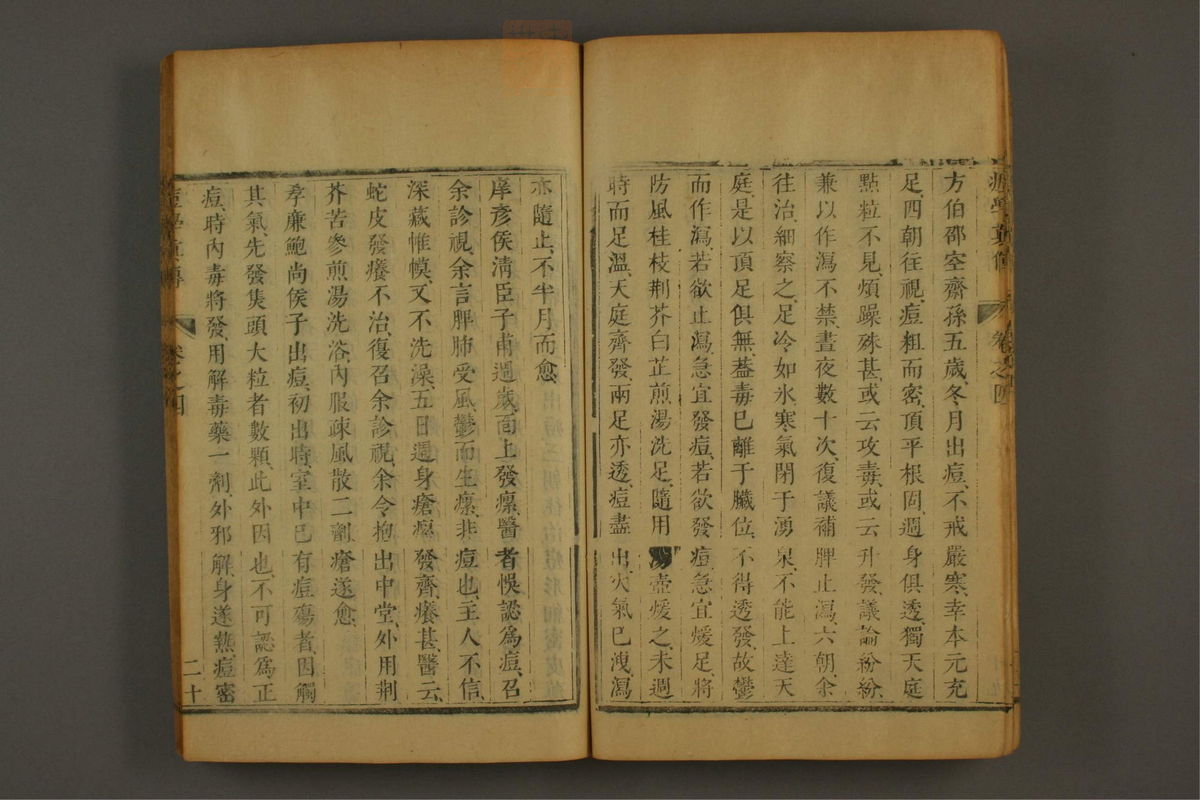 方伯邵空齋孫五歲、冬月出痘、不戒嚴寒、幸本元充
足、四朝往視、痘粗而密、頂平根固、週身俱透、獨天庭
點粒不見、煩躁殊甚、或云攻毒、或云升發、議論紛紛、
兼以作瀉不禁、晝夜數十次、復議補脾止瀉、六朝余
往治、細察之、足冷如氷、寒氣閉于湧泉、不能上達天
庭、是以頂足俱無、蓋毒已離于臟位、不得透發、故鬱
而作瀉、若欲止瀉、急宜發痘、若欲發痘、急宜煖足、將
防風桂枝荆芥白芷煎湯洗足、隨用湯壺煖之、未週
時而足溫、天庭齊發、兩足亦透、痘盡出、火氣已洩、瀉
亦隨止、不半月而愈、
彦侯淸臣子甫週歲、面上發瘰、醫者悞認為痘、召
余診視、余言脾肺受風、鬱而生瘰、非痘也、主人不信、
深藏帷幙、又不洗澡、五日週身瘡瘰發齊、癢甚、醫云
蛇皮發癢不治、復召余診視、余令抱出中堂、外用荆
芥苦參煎湯洗浴、内服疎風散二劑、瘡遂愈、
孝廉鮑尚侯子出痘、初出時、室中已有痘瘍者、因觸
其氣、先發集頭大粒者數顆、此外因也、不可認為正
痘、時内毒將發、用解毒藥一劑、外邪解、身遂熱、痘密
痘學真傳
卷之四
二十